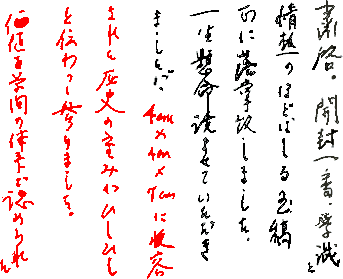 粛啓。開封一番・学識と
情報のほどばしる玉稿
正に落掌致しました。
一生懸命読ませていただき
ました。4cm×4cm×7cmに収容
された歴史の重みがひしひし
と伝わって参りました。
価値を学問の体系が認められた